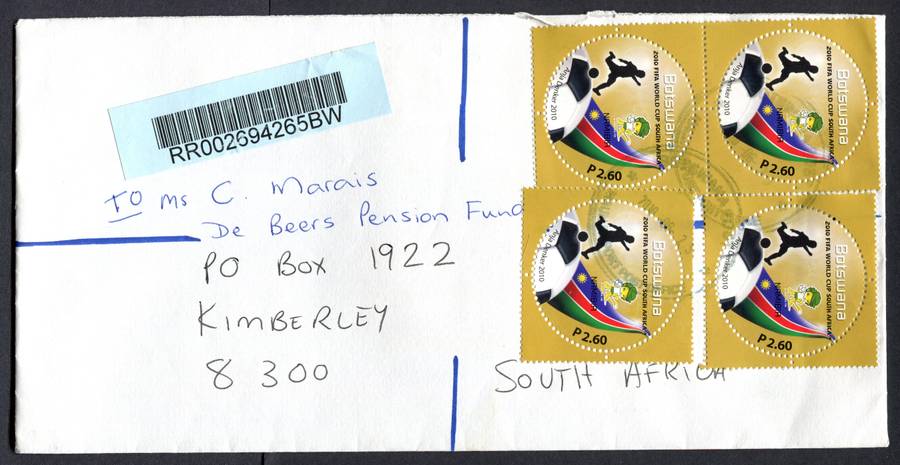 RR002694265BW
TO Ms C. Marais
De Beers Pension Fund
PO Box 1922
KIMBERLEY
8 300
SOUTH AFRICA
Botswana
2010 FIFA WORLD CUP SOUTH AFRICA
NAMIBIA
Anja Denker 2010
P 2.60
Botswana
2010 FIFA WORLD CUP SOUTH AFRICA
NAMIBIA
Anja Denker 2010
P 2.60
Botswana
2010 FIFA WORLD CUP SOUTH AFRICA
NAMIBIA
Anja Denker 2010
P 2.60
Botswana
2010 FIFA WORLD CUP SOUTH AFRICA
NAMIBIA
Anja Denker 2010
P 2.60